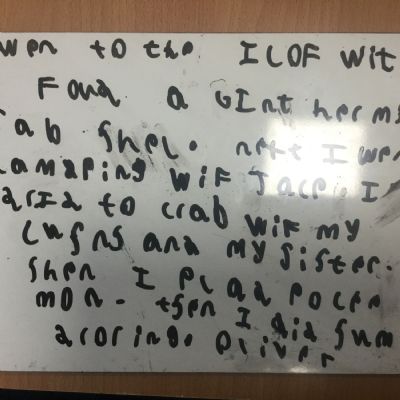 wen to the ILOF wit
Fond a GInt herms
ab shel. nekt I wen
amaping wiF Jace. I
arIa to crab wiF my
cusns and my sister.
shen I plad pocee
mon. then I did sum
aroring. Oliver